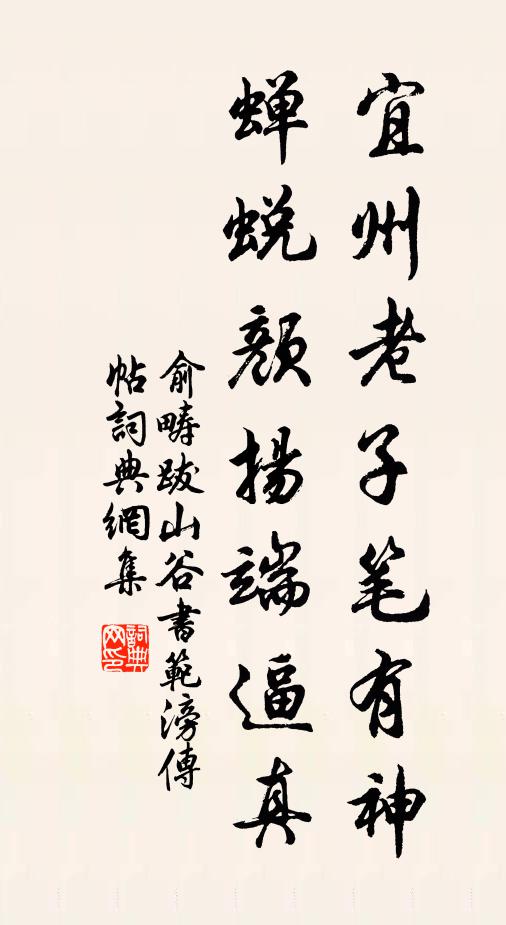 宜州老子笔有神
蝉蜕颜揚端逼真
俞疇跋山谷書範滂傳
帖詞典網集
詞典
网印